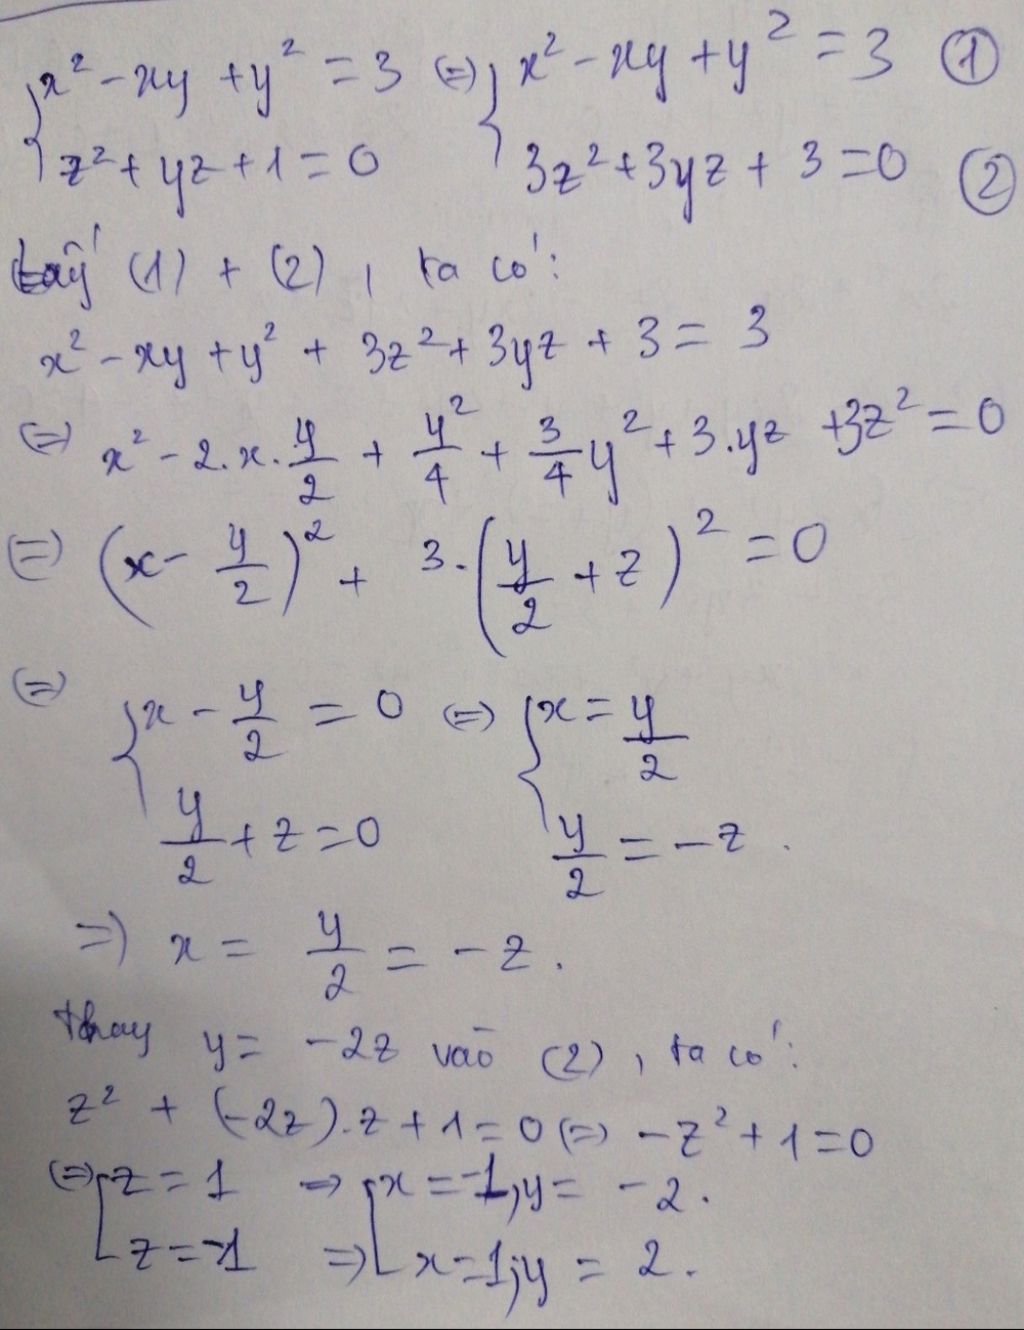 {x² - xy + y² = 3 (=) {x² - xy + y² = 3 ①
z² + yz + 1 = 0 3z² + 3yz + 3 = 0 ②
Lấy (1) + (2), ta có:
x² - xy + y² + 3z² + 3yz + 3 = 3
(=) x² - 2.x.y/2 + y²/4 + 3/4 y² + 3.yz + 3z² = 0
(=) (x - y/2)² + 3.(y/2 + z)² = 0
(=) {x - y/2 = 0 (=) {x = y/2
y/2 + z = 0 y/2 = -z.
=) x = y/2 = -z.
thay y = -2z vào (2), ta có:
z² + (-2z).z + 1 = 0 (=) -z² + 1 = 0
(=) [z = 1 => [x = -1; y = -2.
z = -1 => x = 1; y = 2.